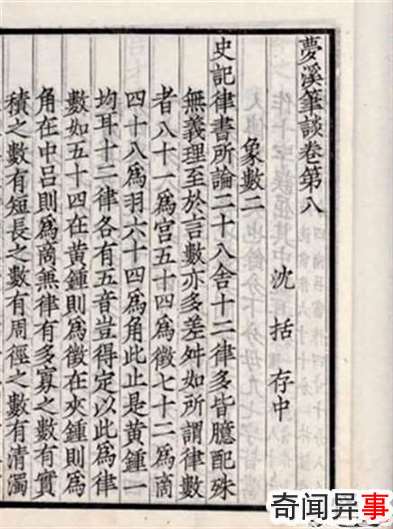 夢溪筆談卷第八
沈括存中
象數二
史記律書所論二十八舍十二律多皆臆配殊
無義理至於言數亦多差舛如所謂律數
者八十一為宮五十四為徵七十二為商
四十八為羽六十四為角此止是黃鍾一
均耳十二律各有五音豈得定以此為律
數如五十四在黃鍾則為徵在夾鍾則為
角在中呂則為商兼律有多寡之數有實
積之數有短長之數有周徑之數有清濁
奇闻异事